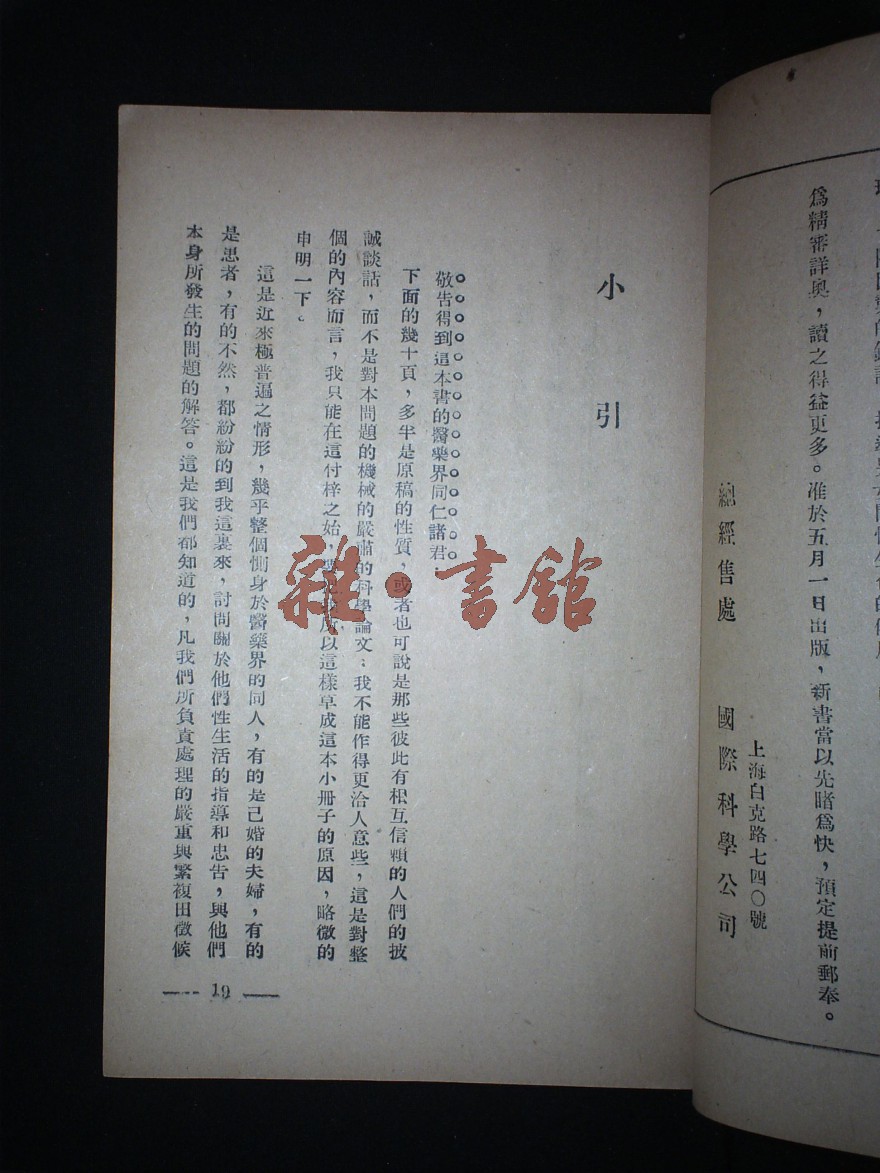 爲精審詳奧，讀之得益更多。准於五月一日出版，新書當以先睹爲快，預定提前郵奉。
上海白克路七四〇號
總經售處　國際科學公司
小引
敬告得到這本書的醫藥界同仁諸君：
下面的幾十頁，多半是原稿的性質，或者也可說是那些彼此有相互信賴的人們的披
誠談話，而不是對本問題的機械的嚴肅的科學論文；我不能作得更洽人意些，這是對整
個的內容而言，我只能在這付梓之始，所以這樣草成這本小冊子的原因，略微的
申明一下。
這是近來極普遍之情形，幾乎整個惻身於醫藥界的同人，有的是已婚的夫婦，有的
是患者，有的不然，都紛紛的到我這裏來，討問關於他們性生活的指導和忠告，與他們
本身所發生的問題的解答。這是我們都知道的，凡我們所負責處理的嚴重與繁複田徵候
— 19 —
雜·書館